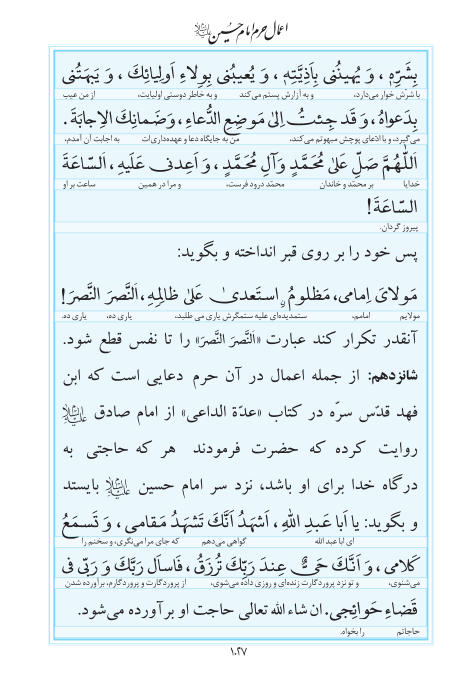 اعمال حرم امام حسین علیه‌السلام
بِشَرِّهِ ، وَ يُهينُني بِاَذِيَّتِهِ ، وَ يُعيبُني بِوِلاءِ اَولِيائِكَ ، وَ يَبهَتُني
با شرش خوار می‌دارد، و به آزارش پستم می‌کند و به خاطر دوستی اولیایت، از من عیب
بِدَعواهُ ، وَ قَد جِئتُ اِلىٰ مَوضِعِ الدُّعاءِ ، وَضَمانِكَ الاِجابَةَ .
می‌گیرد، و با ادّعای پوچش مبهوتم می‌کند، من به جایگاه دعا و عهده‌داری‌ات به اجابت آن آمدم،
اَللّٰهُمَّ صَلِّ عَلىٰ مُحَمَّدٍ وَآلِ مُحَمَّدٍ ، وَ اَعِدني عَلَيهِ ، اَلسّاعَةَ
خدایا بر محمّد و خاندان محمّد درود فرست، و مرا در همین ساعت بر او
السّاعَةَ!
پیروز گردان.
پس خود را بر روی قبر انداخته و بگوید:
مَولايَ اِمامي، مَظلومٌ اِستَعدىٰ عَلىٰ ظالِمِهِ، اَلنَّصرَ النَّصرَ!
مولایم امامم، ستمدیده‌ای علیه ستمگرش یاری می طلبد، یاری ده، یاری ده.
آنقدر تکرار کند عبارت «اَلنَّصرَ النَّصرَ» را تا نفس قطع شود.
شانزدهم: از جمله اعمال در آن حرم دعایی است که ابن
فهد قدّس سرّه در کتاب «عدّة الداعی» از امام صادق علیه‌السلام
روایت کرده که حضرت فرمودند هر که حاجتی به
درگاه خدا برای او باشد، نزد سر امام حسین علیه‌السلام بایستد
و بگوید: يا اَبا عَبدِ اللهِ ، اَشهَدُ اَنَّكَ تَشهَدُ مَقامي ، وَ تَسمَعُ
ای ابا عبد الله گواهی می‌دهم که جای مرا می‌نگری، و سخنم را
كَلامي ، وَ اَنَّكَ حَيٌّ عِندَ رَبِّكَ تُرزَقُ ، فَاسأَل رَبَّكَ وَ رَبّي في
می‌شنوی، و تو نزد پروردگارت زنده‌ای و روزی داده می‌شوی، از پروردگارت و پروردگارم، برآورده شدن
قَضاءِ حَوائِجي. ان شاء الله تعالی حاجت او برآورده می‌شود.
حاجاتم را بخواه.
۱۰۲۷